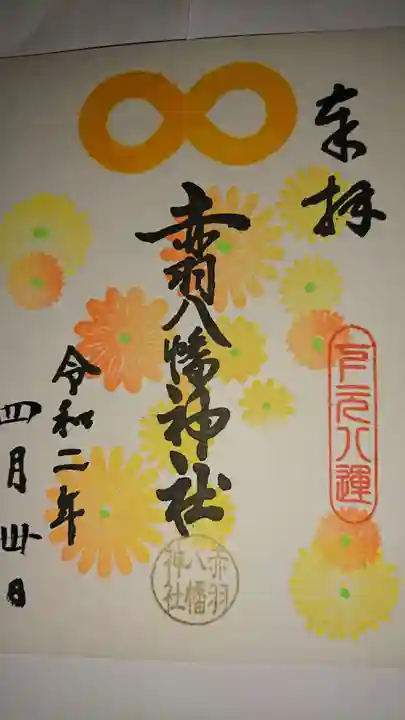 奉拝
下元八運
赤羽八幡神社
赤羽
八幡
神社
令和二年
四月卅日